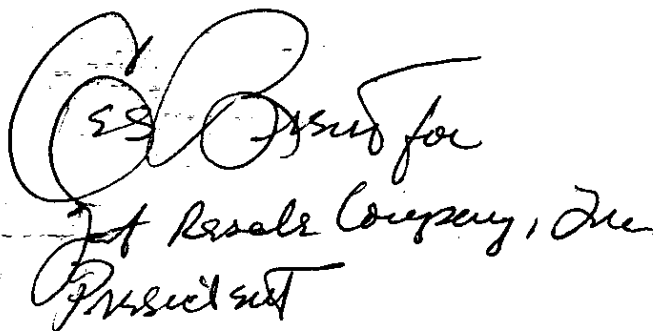 for
Jet Resale Company, Inc
President